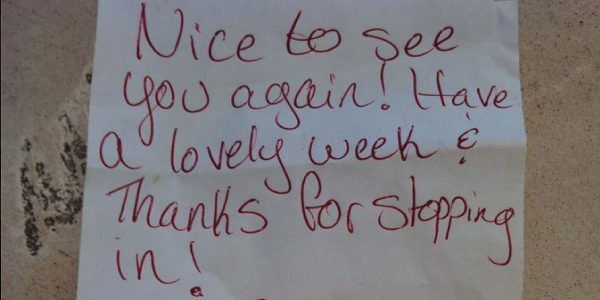 Nice to see
you again! Have
a lovely week &
Thanks for stopping
in!